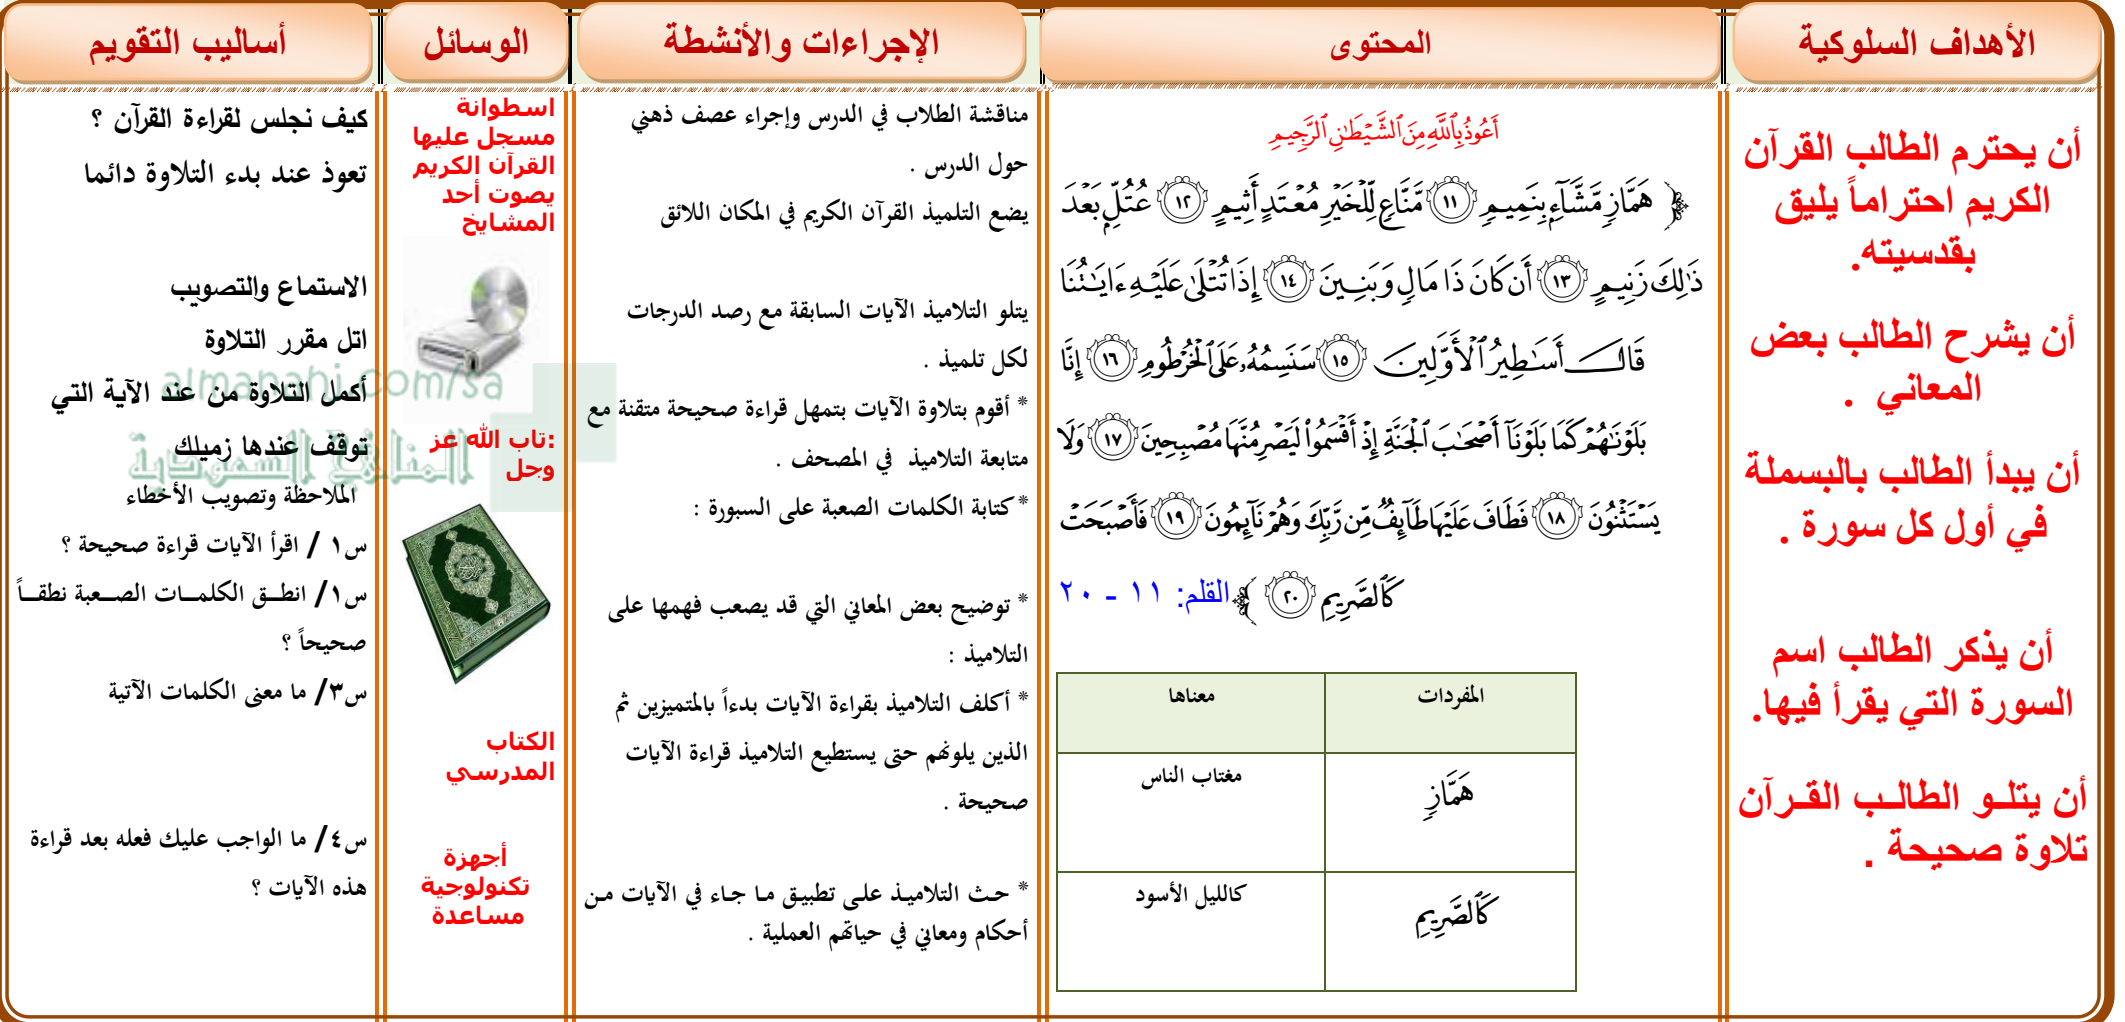 الأهداف السلوكية
أن يحترم الطالب القرآن
الكريم احتراماً يليق
بقدسيته.
أن يشرح الطالب بعض
المعاني .
أن يبدأ الطالب بالبسملة
في أول كل سورة .
أن يذكر الطالب اسم
السورة التي يقرأ فيها.
أن يتلــو الطالــب القــرآن
تلاوة صحيحة .
المحتوى
أَعُوذُ بِٱللَّهِ مِنَ ٱلشَّيْطَٰنِ ٱلرَّجِيمِ
﴿ هَمَّازٖ مَّشَّآءِۭ بِنَمِيمٖ ١١ مَّنَّاعٖ لِّلۡخَيۡرِ مُعۡتَدٍ أَثِيمٍ ١٢ عُتُلِّۭ بَعۡدَ
ذَٰلِكَ زَنِيمٍ ١٣ أَن كَانَ ذَا مَالٖ وَبَنِينَ ١٤ إِذَا تُتۡلَىٰ عَلَيۡهِ ءَايَٰتُنَا
قَالَ أَسَٰطِيرُ ٱلۡأَوَّلِينَ ١٥ سَنَسِمُهُۥ عَلَى ٱلۡخُرۡطُومِ ١٦ إِنَّا
بَلَوۡنَٰهُمۡ كَمَا بَلَوۡنَآ أَصۡحَٰبَ ٱلۡجَنَّةِ إِذۡ أَقۡسَمُواْ لَيَصۡرِمُنَّهَا مُصۡبِحِينَ ١٧ وَلَا
يَسۡتَثۡنُونَ ١٨ فَطَافَ عَلَيۡهَا طَآئِفٞ مِّن رَّبِّكَ وَهُمۡ نَآئِمُونَ ١٩ فَأَصۡبَحَتۡ
كَٱلصَّرِيمِ ٢٠ ﴾ القلم: ١١ - ٢٠
المفردات معناها
هَمَّازٖ مغتاب الناس
كَٱلصَّرِيمِ كالليل الأسود
الإجراءات والأنشطة
مناقشة الطلاب في الدرس وإجراء عصف ذهني
حول الدرس .
يضع التلميذ القرآن الكريم في المكان اللائق
يتلو التلاميذ الآيات السابقة مع رصد الدرجات
لكل تلميذ .
* أقوم بتلاوة الآيات بتمهل قراءة صحيحة متقنة مع
متابعة التلاميذ في المصحف .
* كتابة الكلمات الصعبة على السبورة :
* توضيح بعض المعاني التي قد يصعب فهمها على
التلاميذ :
* أكلف التلاميذ بقراءة الآيات بدءاً بالمتميزين ثم
الذين يلونهم حتى يستطيع التلاميذ قراءة الآيات
صحيحة .
* حث التلاميذ على تطبيق ما جاء في الآيات من
أحكام ومعاني في حياتهم العملية .
الوسائل
اسطوانة
مسجل عليها
القرآن الكريم
بصوت أحد
المشايخ
:تاب الله عز
وجل
الكتاب
المدرسي
أجهزة
تكنولوجية
مساعدة
أساليب التقويم
كيف نجلس لقراءة القرآن ؟
تعوذ عند بدء التلاوة دائما
الاستماع والتصويب
اتل مقرر التلاوة
أكمل التلاوة من عند الآية التي
توقف عندها زميلك
الملاحظة وتصويب الأخطاء
س١ / اقرأ الآيات قراءة صحيحة ؟
س١/ انطــق الكلمــات الصــعبة نطقــاً
صحيحاً ؟
س٣/ ما معنى الكلمات الآتية
س٤/ ما الواجب عليك فعله بعد قراءة
هذه الآيات ؟
almanahj.com/sa
المناهج السعودية